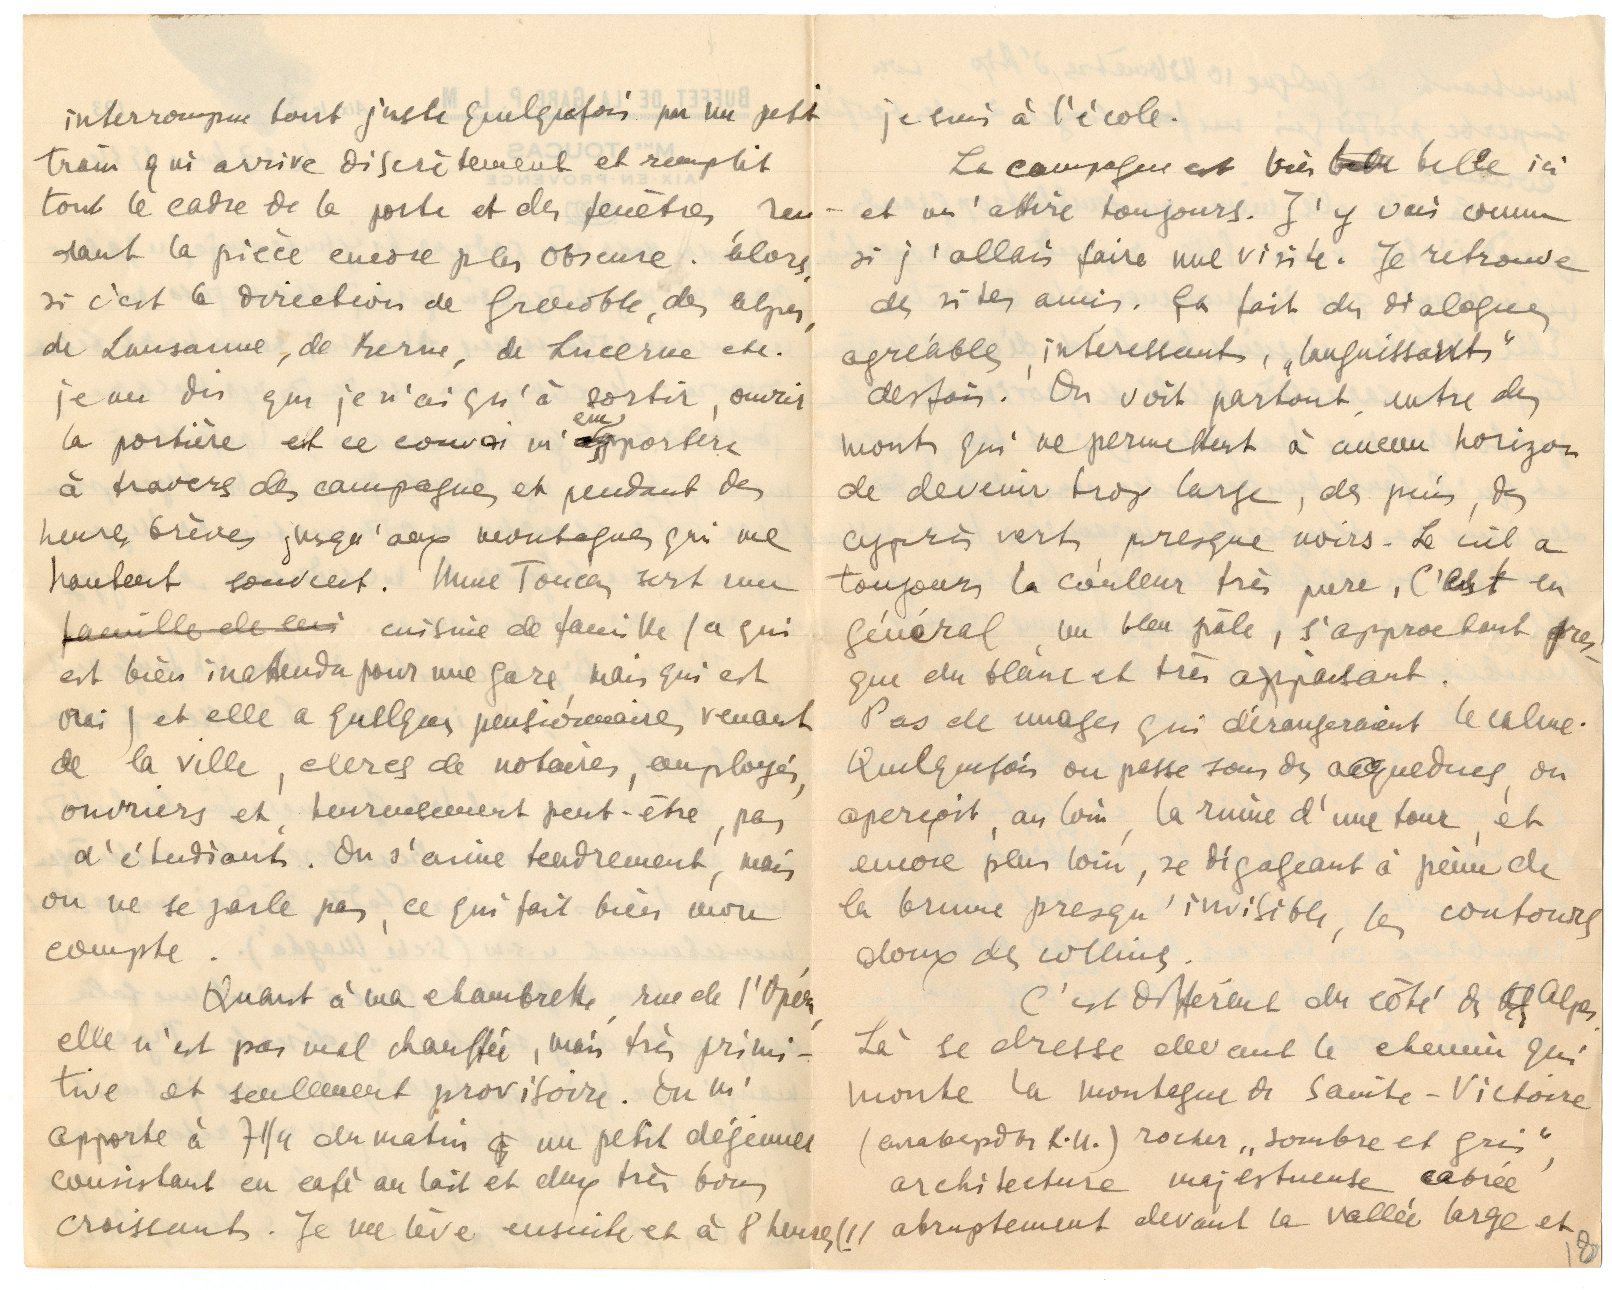 interrompue tout juste quelquefois par un petit
train qui arrive discrètement et remplit
tout le cadre de la porte et des fenêtres ren-
dant la pièce encore plus obscure. Alors,
si c'est la direction de Grenoble, des Alpes,
de Lausanne, de Berne, de Lucerne etc.
je me dis que je n'ai qu'à sortir, ouvrir
la portière et ce convoi m'emportera
à travers des campagnes et pendant des
heures brèves jusqu'aux montagnes qui me
hantent souvent. Mme Toucas sert une
famille de cui cuisine de famille (ce qui
est bien inattendu pour une gare, mais qui est
vrai) et elle a quelques pensionnaires venant
de la ville, clercs de notaires, employés,
ouvriers et, heureusement peut-être, pas
d'étudiants. On s'anime tendrement, mais
on ne se parle pas, ce qui fait bien mon
compte.
Quant à ma chambrette, rue de l'Opéra,
elle n'est pas mal chauffée, mais très primi-
tive et seulement provisoire. On m'
apporte à 7 1/4 du matin un petit déjeuner
consistant en café au lait et deux très bons
croissants. Je me lève ensuite et à 8 heures (!)
je suis à l'école.
La campagne est bien belle belle ici
et m'attire toujours. J'y vais comme
si j'allais faire une visite. Je retrouve
des sites amis. Ça fait des dialogues
agréables, intéressants, „languissants"
desfois. On voit partout, entre des
monts qui ne permettent à aucun horizon
de devenir trop large, des pins, des
cyprès verts presque noirs. Le ciel a
toujours la couleur très pure, c'est en
général un bleu pâle, s'approchant pres-
que du blanc et très apaisant.
Pas de nuages qui dérangeraient le calme.
Quelquefois on passe sous des acqueducs, on
aperçoit, au loin, la ruine d'une tour, et
encore plus loin, se dégageant à peine de
la brume presqu'invisible, les contours
doux des collines.
C'est différent du côté des Alpes.
Là se dresse devant le chemin qui
monte la montagne de Sainte-Victoire
rocher „sombre et gris",
architecture majestueuse cabrée
abruptement devant la vallée large et
180
BUFFET DE LA GARE P. L. M.
Mme TOUCAS
AIX-EN-PROVENCE